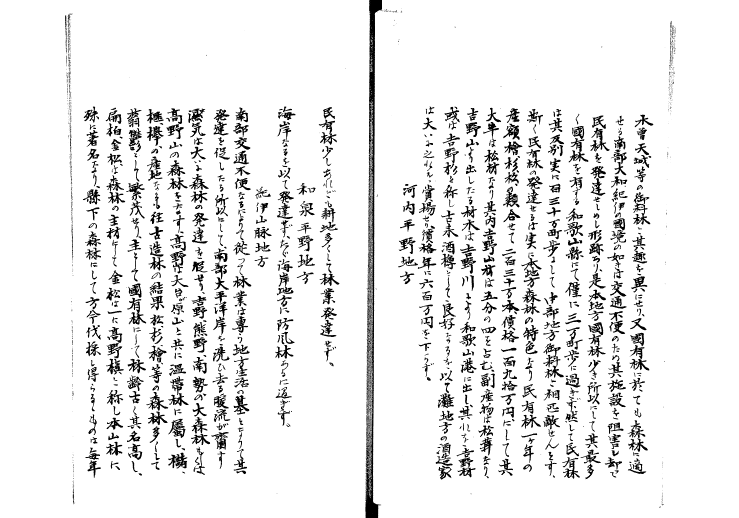 木曽天城等の御料林と其趣を異にせり又國有林に於ても森林に適
せる南部大和紀伊の國境の如きは交通不便のため其施設を阻害し却て
民有林を発達せしめし形跡あり是本地方國有林少き所以にして其最多
く國有林を有する和歌山縣にて僅に三万町歩に過ぎず然して民有林
は其反別実に百三十万町歩にして中部地方御料林と相匹敵せんとす、
斯く民有林の発達せるは実に本地方森林の特色なり民有林一ヶ年の
産額檜杉松の類合せて二百三十万本價格一百九拾万円にして其
大半は松材なり其内吉野山材は五分の四を占む、副産物は松茸なり、
吉野山より出したる材木は吉野川により和歌山港に出し其れを吉野材
或は吉野杉と称し古来酒樽として良好なるを以て灘地方の酒造家
は大いに之れを賞揚す價格年に六百万円を下らず。
河内平野地方
民有林少しあれども耕地多くして林業発達せず。
和泉平野地方
海岸なるを以て発達せず、たゞ海岸地方に防風林あるに過ぎず。
紀伊山脉地方
南部交通不便なるによりて従って林業は専ら地方生活の基となりて其
発達を促したる所以にして南部太平洋岸を洗ひ去る暖流が齎す
濕気は大に森林の発達を促せり吉野、熊野、南勢の大森林もしくは
高野山の森林をなす、高野は大台ヶ原山と共に温帯林に屬し、橅、
樅、欅の産地なるも往古造林の結果松杉檜等の森林多くして
蓊鬱として繁茂せり、主として國有林にして林齢古く其名高し、
扁柏、金松は森林の主材にして金松は一に高野槙と称し本山林に
殊に著名なり、縣下の森林にして方今伐採し得らるゝものは毎年